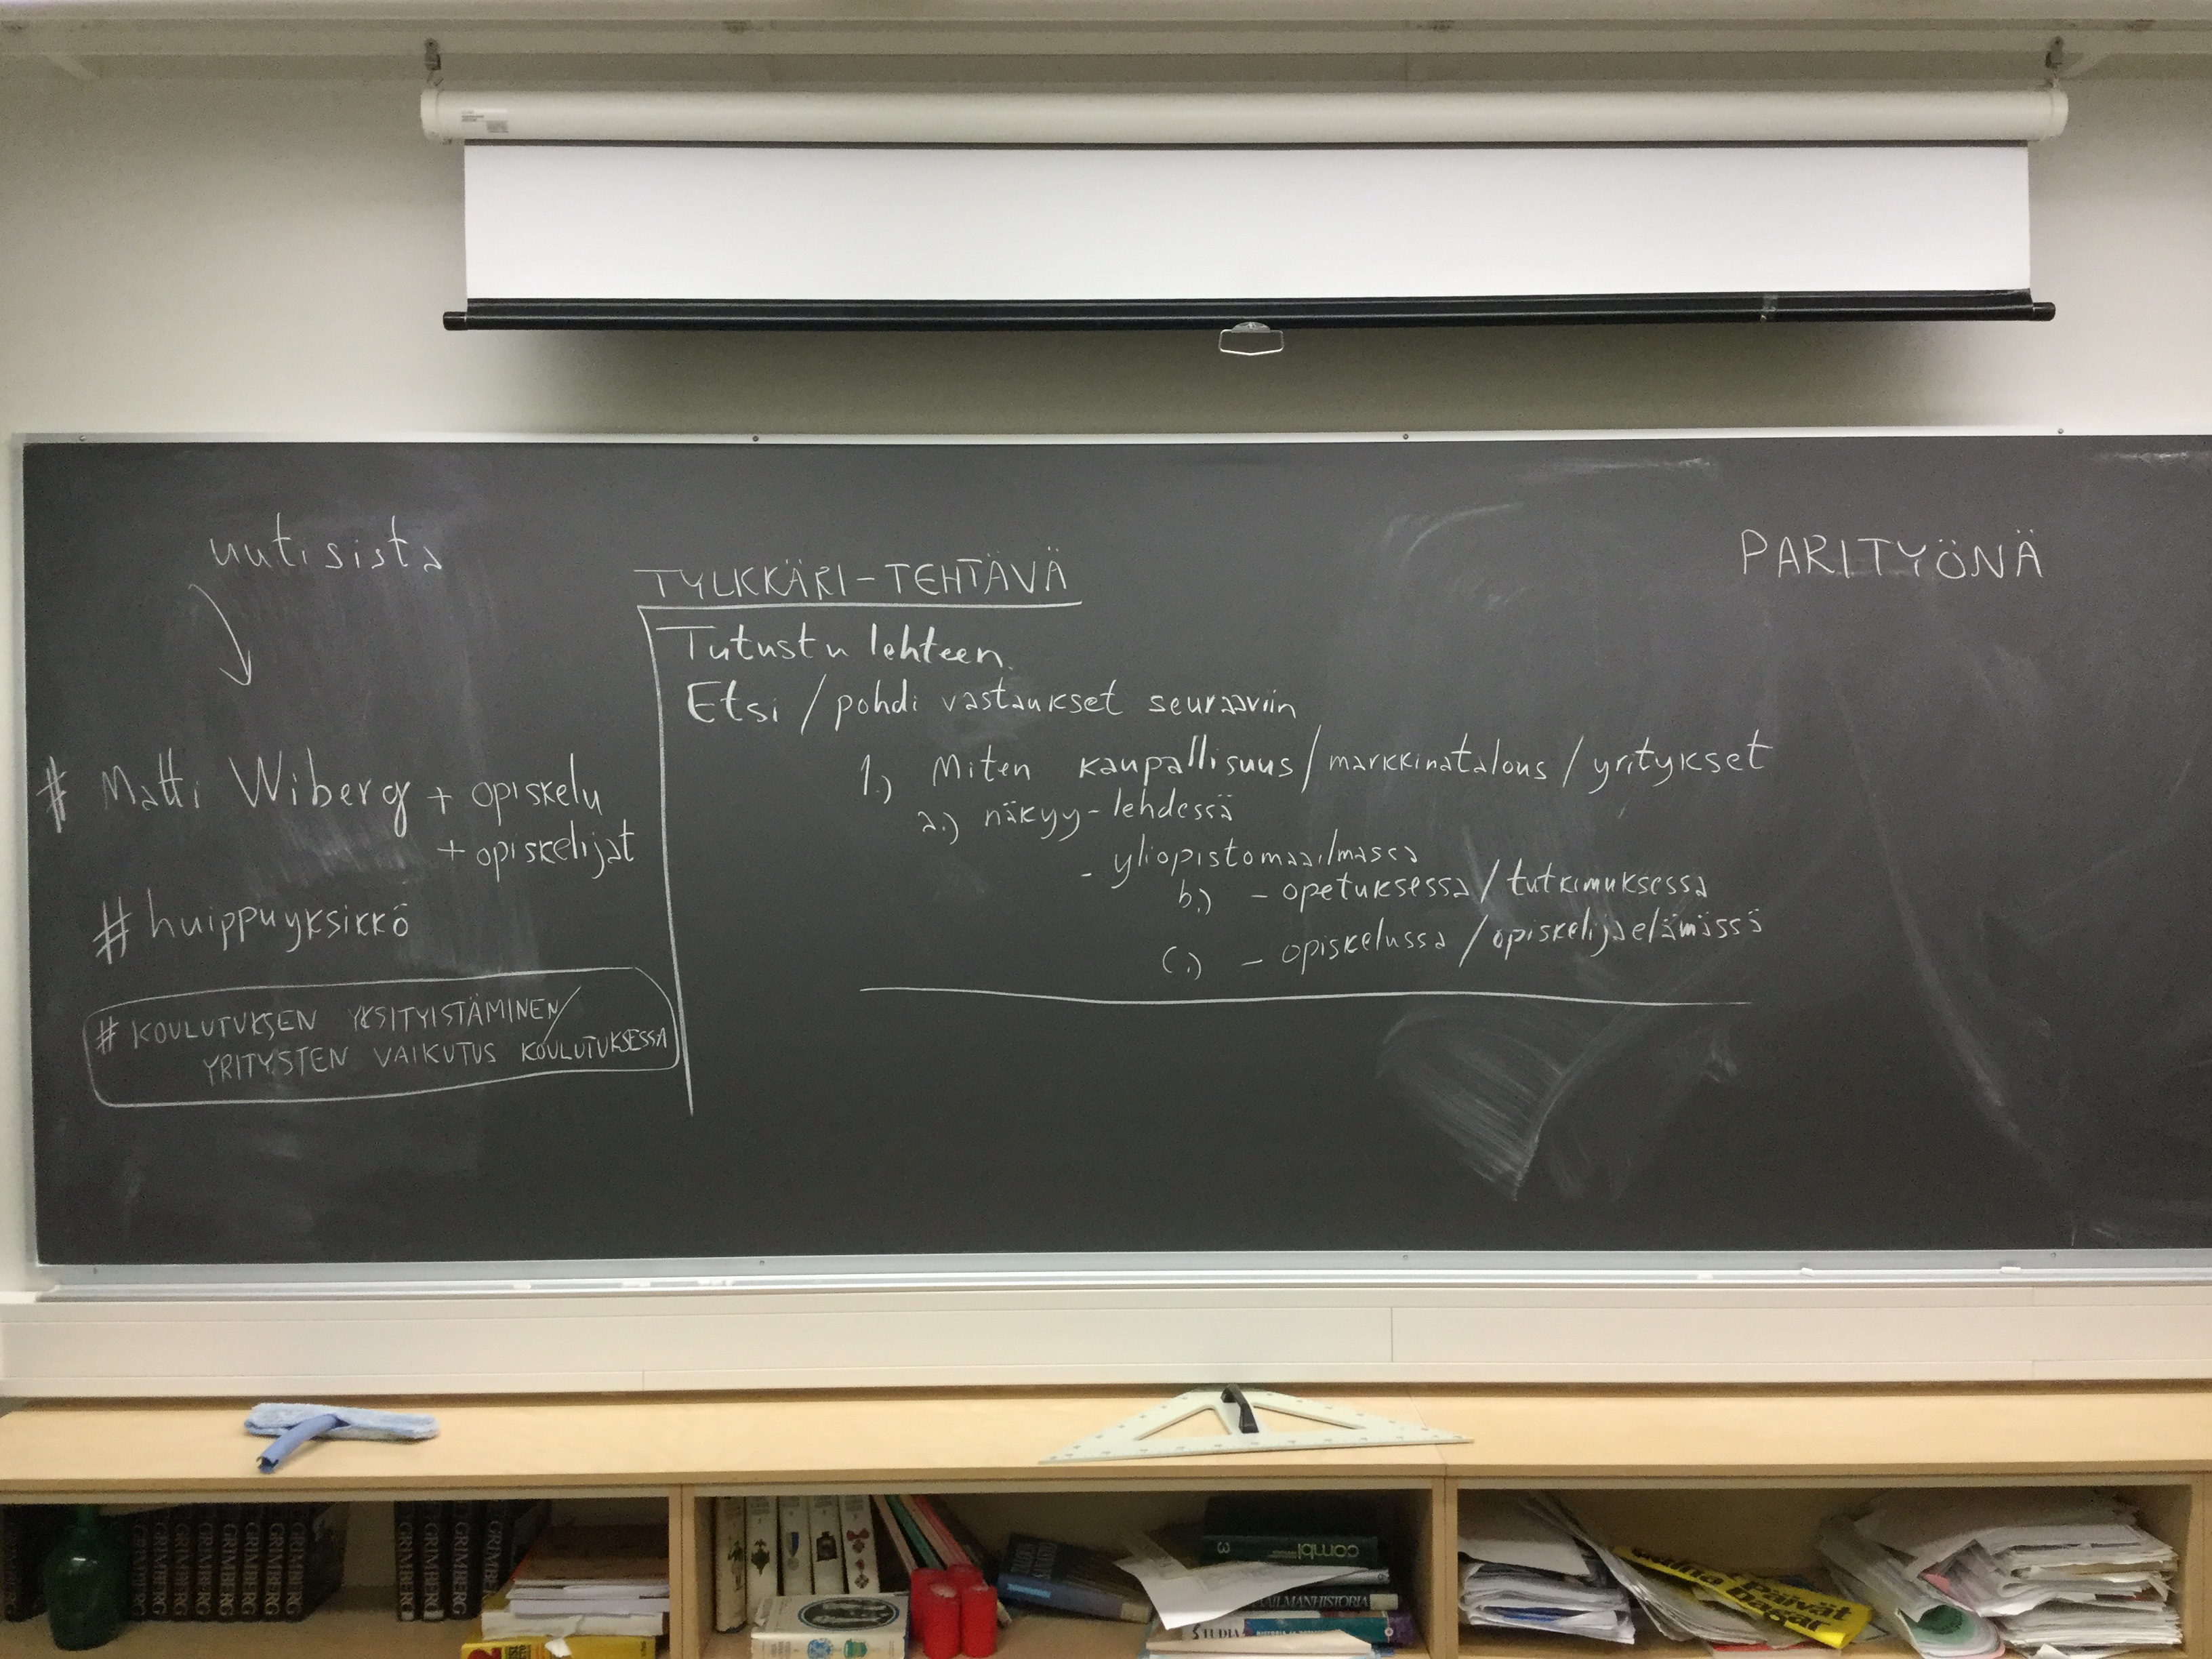 uutisista
# Matti Wiberg + opiskelu
+ opiskelijat
# huippuyksikkö
# KOULUTUKSEN YKSITYISTÄMINEN/
YRITYSTEN VAIKUTUS KOULUTUKSESSA
TYLKKÄRI-TEHTÄVÄ
Tutustu lehteen.
Etsi / pohdi vastaukset seuraaviin
1.) Miten kaupallisuus/markkinatalous/yritykset
a.) näkyy - lehdessä
- yliopistomaailmassa
b.) - opetuksessa/tutkimuksessa
c.) - opiskelussa/opiskelijaelämässä
PARITYÖNÄ
GRIMBERG
GRIMBERG
GRIMBERG
GRIMBERG
GRIMBERG
GRIMBERG
GRIMBERG
GRIMBERG
GRIMBERG
GRIMBERG
GRIMBERG
combi
3
STUDIA
Päivät